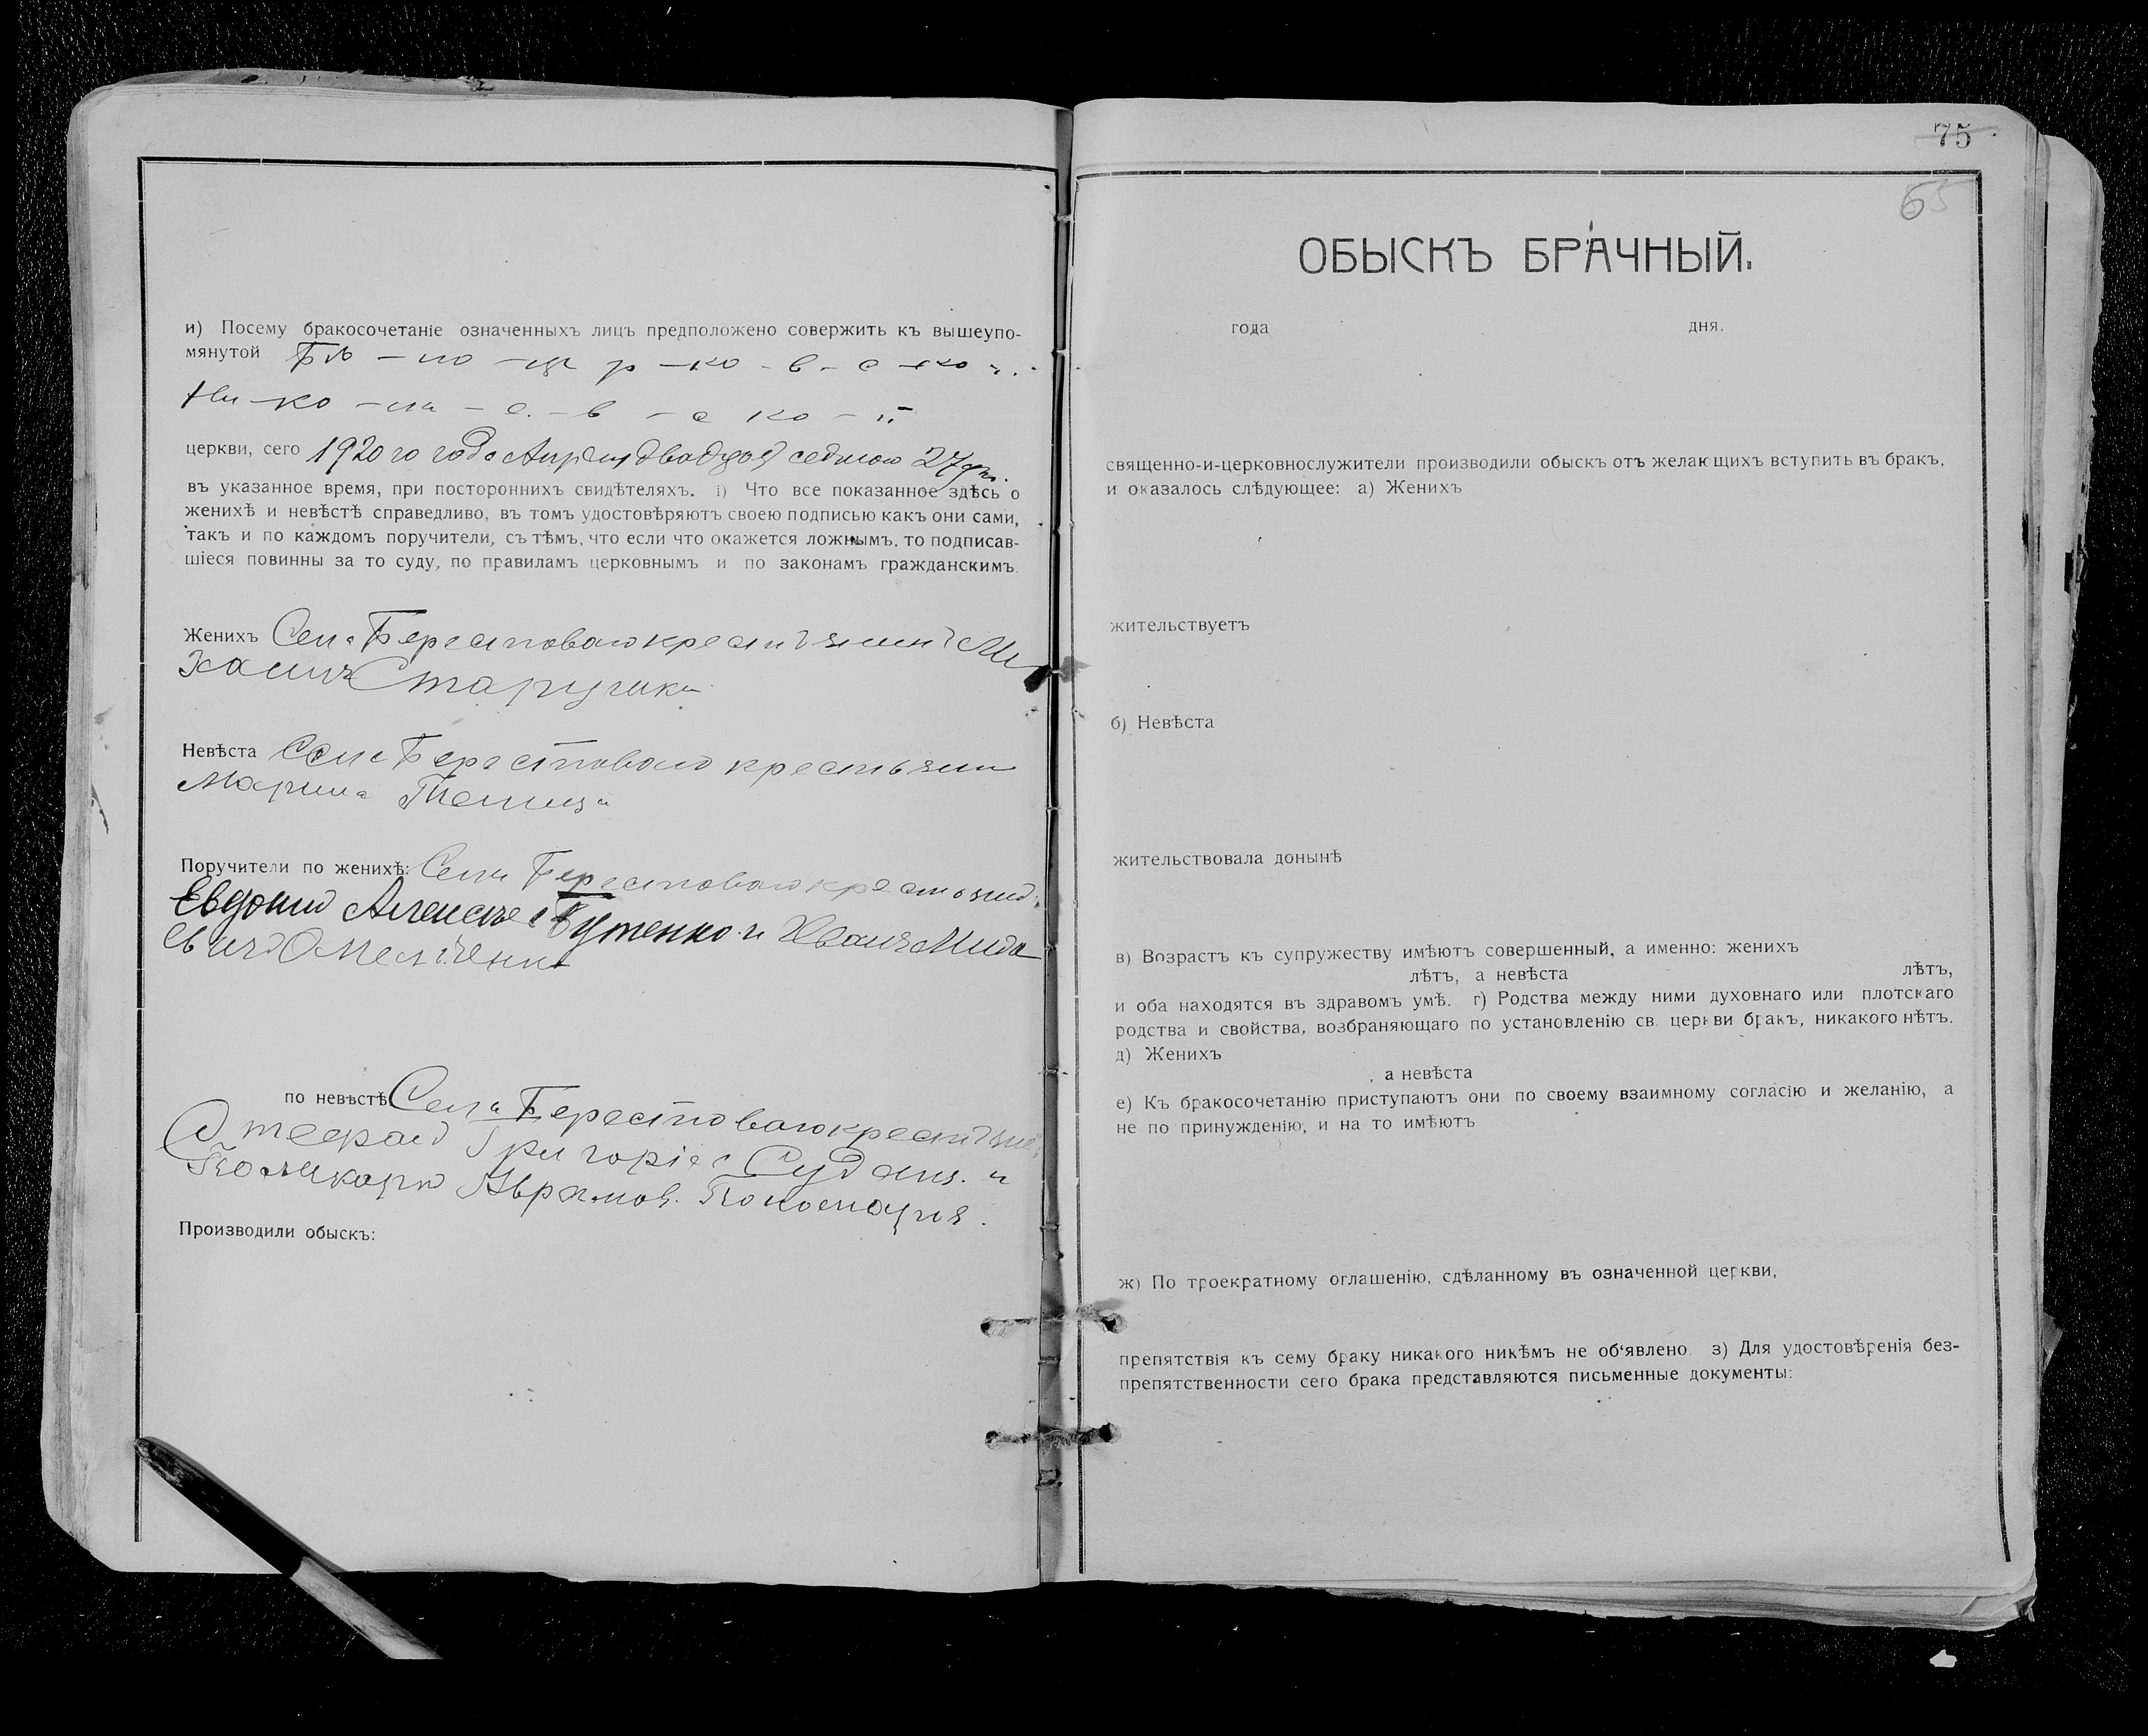 и) Посему бракосочетаніе означенныхъ лицъ предположено совержить къ вышеупо-
мянутой
церкви, сего 1920 го года Апреля двадцать седьмого 27 дн.
въ указанное время, при постороннихъ свидѣтеляхъ. і) Что все показанное здѣсь о
женихѣ и невѣстѣ справедливо, въ томъ удостовѣряютъ своею подписью какъ они сами,
такъ и по каждомъ поручители, съ тѣмъ, что если что окажется ложнымъ, то подписав-
шіеся повинны за то суду, по правиламъ церковнымъ и по законамъ гражданскимъ.
Женихъ Села Берестоваго крестьянинъ Ми
хаилъ
Невѣста Села Берестоваго
Марина
Поручители по женихѣ: Села Берестоваго
Евдоким Алексеев Бутенко и Иванъ
по невѣстѣ Села Берестоваго
Григоріев
Поликарп Аврамов.
Производили обыскъ:
75
65
ОБЫСКЪ БРАЧНЫЙ.
года дня.
священно-и-церковнослужители производили обыскъ отъ желающихъ вступить въ бракъ,
и оказалось слѣдующее: а) Женихъ
жительствуетъ
б) Невѣста
жительствовала донынѣ
в) Возрастъ къ супружеству имѣютъ совершенный, а именно: женихъ
лѣтъ, а невѣста лѣтъ,
и оба находятся въ здравомъ умѣ. г) Родства между ними духовнаго или плотскаго
родства и свойства, возбраняющаго по установленію св. церкви бракъ, никакого нѣтъ.
д) Женихъ
, а невѣста
е) Къ бракосочетанію приступаютъ они по своему взаимному согласію и желанію, а
не по принужденію, и на то имѣютъ
ж) По троекратному оглашенію, сдѣланному въ означенной церкви,
препятствія къ сему браку никакого никѣмъ не об‘явлено. з) Для удостовѣренія без-
препятственности сего брака представляются письменные документы: